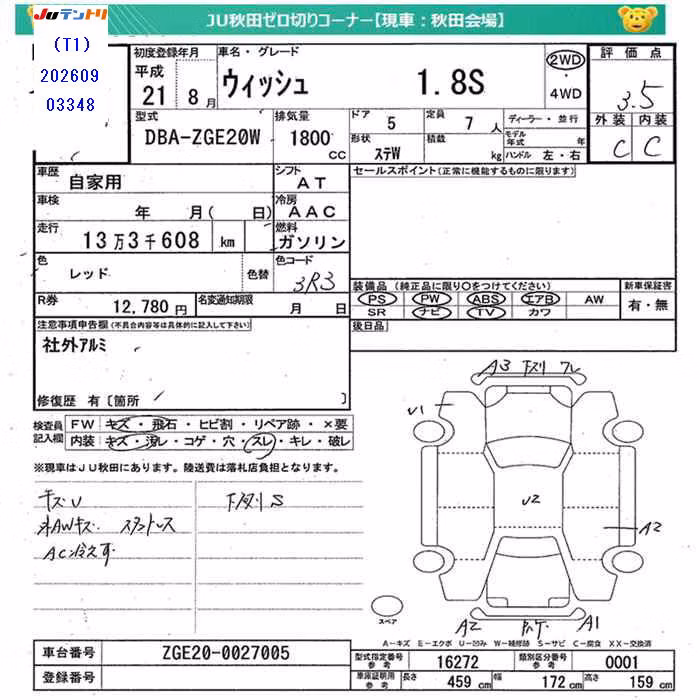 Juテントリ
JU秋田ゼロ切りコーナー【現車：秋田会場】
(T1)
202609
03348
初度登録年月
平成
21年8月
車名・グレード
ウィッシュ 1.8S
2WD
・
4WD
評価点
3.5
外装 内装
C C
型式
DBA-ZGE20W
排気量
1800
CC
ドア
5
定員
7人
形状
ステW
積載
kg
ディーラー・並行
モデル年式 年
ハンドル 左・右
車歴
自家用
シフト
AT
セールスポイント(正常に機能するものに限ります)
車検
年 月( 日)
冷房
AAC
走行
13万3千608 km
燃料
ガソリン
色
レッド
色替
色コード
3R3
装備品 (純正品に限り○をつけてください)
PS PW ABS エアB AW
SR ナビ TV カワ
新車保証書
有・無
R券
12,780円
名変通知期限
月 日
後日品
注意事項申告欄(不具合内容等は具体的に記入して下さい)
社外アルミ
修復歴 有〔箇所 〕
検査員記入欄
FW キズ・飛石・ヒビ割・リペア跡・×要
内装 キズ・汚レ・コゲ・穴・スレ・キレ・破レ
※現車はJU秋田にあります。陸送費は落札店負担となります。
キズU
AWキズ スタットレス
AC冷えず
下グリS
A3 下スリ ワレ
U1
U2
A2
A2
A1
スペア
A－キズ E－エクボ U－凹み W－補修跡 S－サビ C－腐食 XX－交換済
車台番号 ZGE20-0027005
登録番号
型式指定番号
参考
16272
類別区分番号
参考
0001
車庫証明用
参考
長さ 459 cm
幅 172 cm
高さ 159 cm